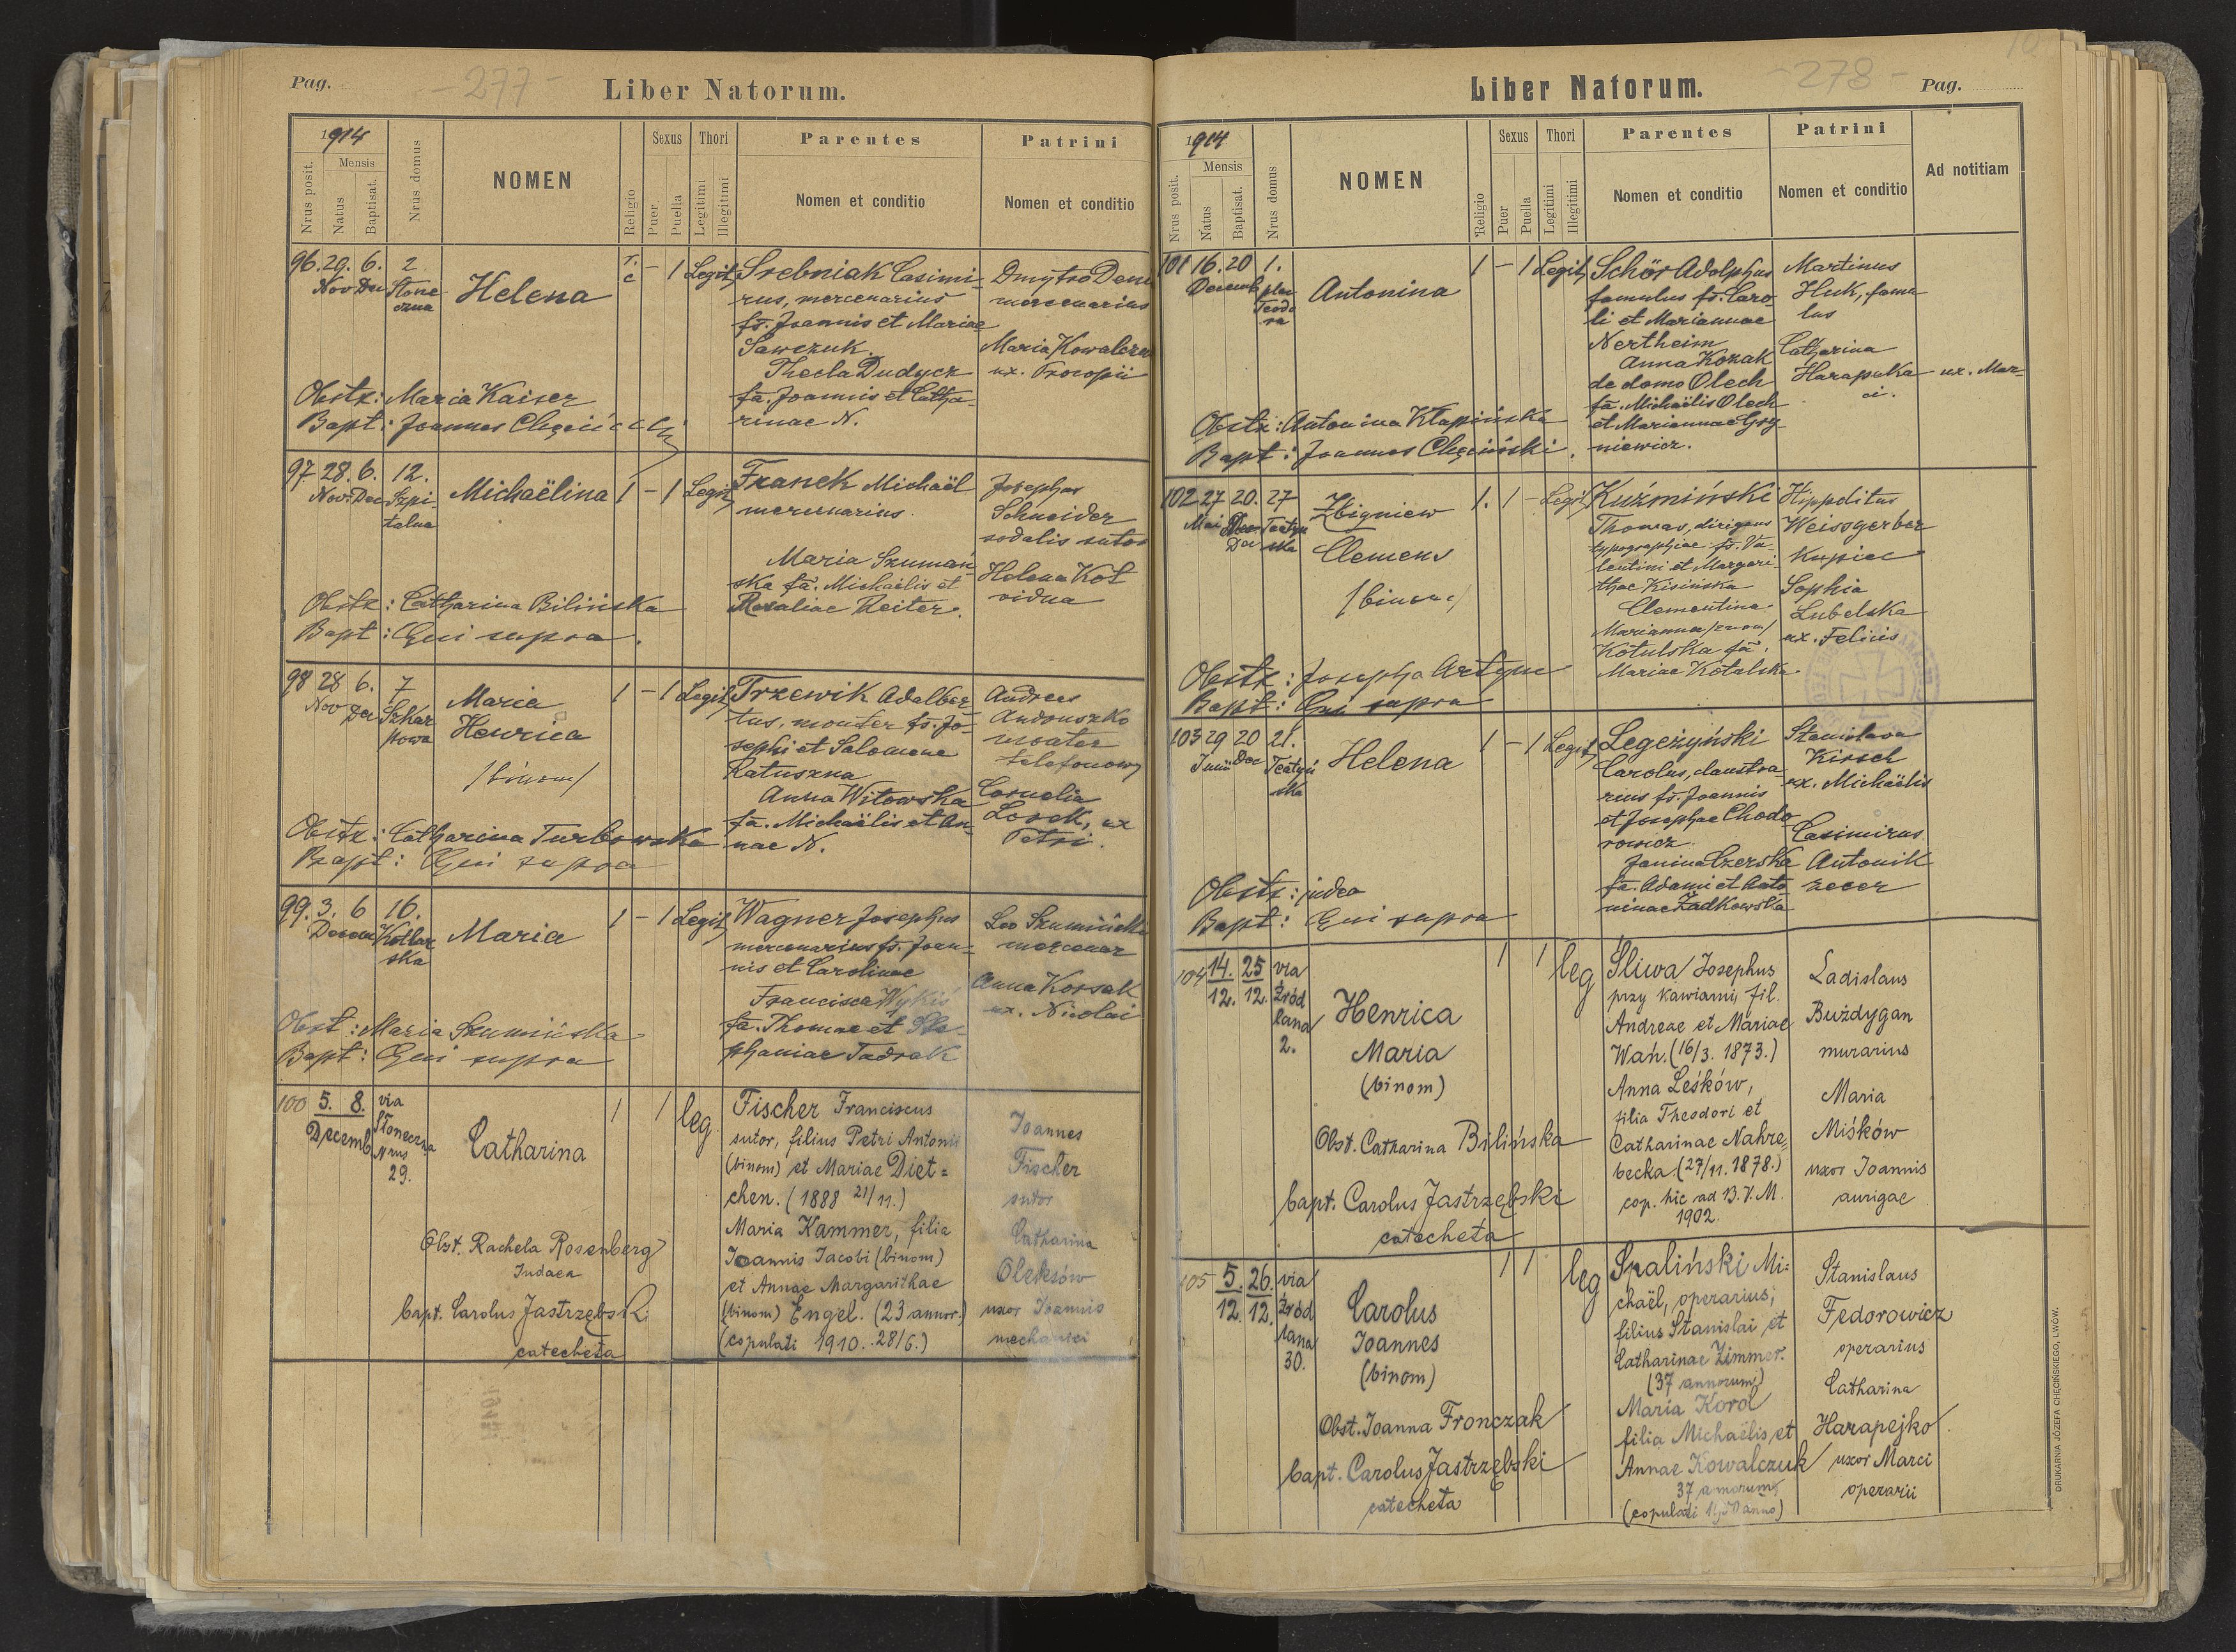 Pag.
- 277 -
Liber Natorum.
1914
Nrus posit.
Mensis
Natus
Baptisat.
Nrus domus
NOMEN
Religio
Sexus
Puer
Puella
Thori
Legitimi
Illegitimi
Parentes
Nomen et conditio
Patrini
Nomen et conditio
96. 29. 6. 2
Nov Dec Słone
czna
Helena
r.
c
- 1 Legit
Srebniak Casimi-
rus, mercenarius
fs. Joannis et Mariae
Sawczuk.
Thecla Dudycz
fa. Joannis et Catha-
rinae N.
Dmytro
mercenarius
Maria
ux. Procopii
Obstz: Maria Kaiser
Bapt: Joannes
97. 28. 6. 12.
Nov. Dec Szpi-
talna
Michaëlina
1 - 1 Legit
Franek Michaël
mercenarius.
Maria Szumań-
ska fa. Michaëlis et
Rosaliae Reiter.
Josephus
Schneider
sodalis sutor
Helena Kot
vidua
Obstz: Catharina Bilińska
Bapt: Qui supra.
98 28 6. 7
Nov Dec Szkar
powa
Maria
Henrica
/binom/
1 - 1 Legit
Trzewik Adalber-
tus, monter fs. Jo-
sephi et Salomene
Ratuszna
Anna Witowska
fa. Michaëlis et An-
nae N.
Andreas
Andruszko
monter
telefonowy
Cornelia
ux
Petri.
Obstz: Catharina Turbowska
Bapt: Qui supra
99. 3. 6 16.
Decem Kotlar
ska
Maria
1 - 1 Legit
Wagner Josephus
mercenarius fs. Joan-
nis et Carolinae
Francisca Wykiś
fa. Thomae et Ste-
phaniae Tadrak
Leo
mercenar
Anna Korsak
ux. Nicolai
Obst: Maria Szumińska
Bapt: Qui supra
100 5. 8. via
Decemb. Słoneczna
Nrus
29.
Catharina
1 1 leg.
Fischer Franciscus
sutor, filius Petri Antonii
(binom) et Mariae Diet=
chen. (1888 21/11.)
Maria Kammer, filia
Joannis Jacobi (binom)
et Annae Margarithae
(binom) Engel. (23 annor.)
(copulati 1910. 28/6.)
Joannes
Fischer
sutor
Catharina
Oleksów
uxor Joannis
mechanici
Obst. Rachela Rosenberg
Judaea
bapt. Carolus Jastrzębski
catecheta
Liber Natorum.
- 278 -
Pag.
1914
Nrus posit.
Mensis
Natus
Baptisat.
Nrus domus
NOMEN
Religio
Sexus
Puer
Puella
Thori
Legitimi
Illegitimi
Parentes
Nomen et conditio
Patrini
Nomen et conditio
Ad notitiam
101 16. 20 1.
Decemb plac
Teodo
ra
Antonina
1 - 1 Legit
Schör Adolphus
famulus fs. Caro-
li et Mariannae
Nertheim
Anna Kozak
de domo Olech
fa. Michaëlis Olech
et Mariannae Gry-
niewicz.
Martinus
Huk, famu
lus
Catharina
Harapuka ux. Mar-
ci.
Obstz: Antonina Kłapińska
Bapt: Joannes Chęciński.
102 27 20. 27
Mai Dec Teatyń
ska
Zbigniew
Clemens
/binom/
1. 1 - Legit
Kuźmiński
Thomas, dirigens
typographiae fs. Va-
lentini et Margari-
thae Kisińska
Clementina
Marianna /binom/
Kotulska fa.
Mariae Kotulska
Hippolitus
Weissgerber
kupiec
Sophia
Lubelska
ux. Felicis
Obstz: Josepha
Bapt: Qui supra
103 29 20 21.
Junii Dec Teatyń
ska
Helena
1 - 1 Legit
Legeżyński
Carolus, claustra-
rius fs. Joannis
et Josephae Chodo-
rowicz
Janina Czerska
fa. Adami et Anto-
ninae Żadkowska
Stanislava
Kirsch
ux. Michaëlis
Casimirus
Antonik
zecer
Obstz: judea
Bapt: Qui supra
104 14. 25 via
12. 12. Źród
lana
2.
Henrica
Maria
(binom)
1 1 leg
Śliwa Josephus
przy kawiarni, fil.
Andreae et Mariae
Wań. (16/3. 1873.)
Anna Leśków,
filia Theodori et
Catharinae Nahre=
becka (27/11. 1878.)
cop. hic ad B.V.M.
1902.
Ladislaus
Buździgan
murarius
Maria
Miśków
uxor Joannis
aurigae
Obst. Catharina Bilińska
bapt. Carolus Jastrzębski
catecheta
105 5. 26. via
12. 12. Źród
lana
30.
Carolus
Joannes
(binom)
1 1 leg
Spaliński Mi=
chaël, operarius,
filius Stanislai et
Catharinae Zimmer.
(37 annorum)
Maria Korol
filia Michaëlis et
Annae Kowalczuk
37 annorum.
(copulati anno)
Stanislaus
Fedorowicz
operarius
Catharina
Harapejko
uxor Marci
operarii
Obst. Joanna Fronczak
bapt. Carolus Jastrzębski
catecheta
DRUKARNIA JÓZEFA CHĘCIŃSKIEGO, LWÓW.